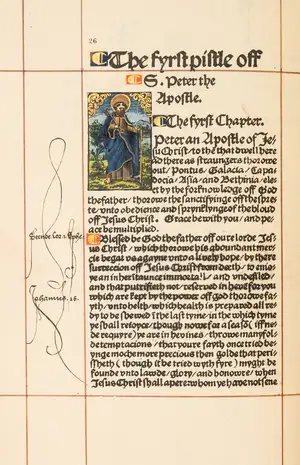 26
The fyrst pistle off
S. Peter the
Apostle.
The fyrst Chapter.
Peter an Apostle of Je/
su Christ/ to the that dwell here
and there as straungers thorowe
out/ Pontus/ Galacia/ Capa
docia/ Asia/ and Bethinia/ elec
t by the forknowledge off God
the father/ thorowe the sanctifyinge off the spre
te/ vnto obedience and sprynklynge of the bloud
off Jesus Christ. Grace be with you/ and pe
ace be multiplied.
Blessed be God the father off oure lorde Jes
us Christ/ which thorowe his aboundant mer
cie begat vs agayne vnto a lively hope/ by the re
surreccion off Jesus Christ from deeth/ to enioy
e an inheritaunce immortall/ and vndefiled/
and that putrifieth not/ reserved in heve for you
which are kept by the power off god thorowe fa
yth/ vnto helth/ which helth is prepared all re
dy to be shewed i the last tyme/ in the which tyme
ye shall reioyce/ though nowe for a seaso (iff ne
de requyre) ye are in hevines/ throwe manyfol
de temptacions/ that youre fayth once tried be/
ynge moche more precious then golde that peri/
ssheth (though it be tried wyth fyre) myght be
founde vnto lawde/ glory/ and honoure/ when
Jesus Christ shall apere: whom ye have not sene
Johannis. 16.